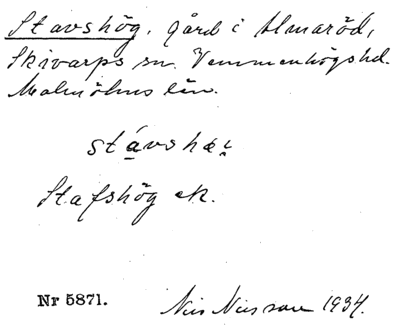 Stavshög, gård i Almaröd,
Skivarps sn. Vemmenhögs hd.
Malmöhus län.
stávshøi
Stafshög ek.
Nr 5871.
Nils Nilsson 1934.